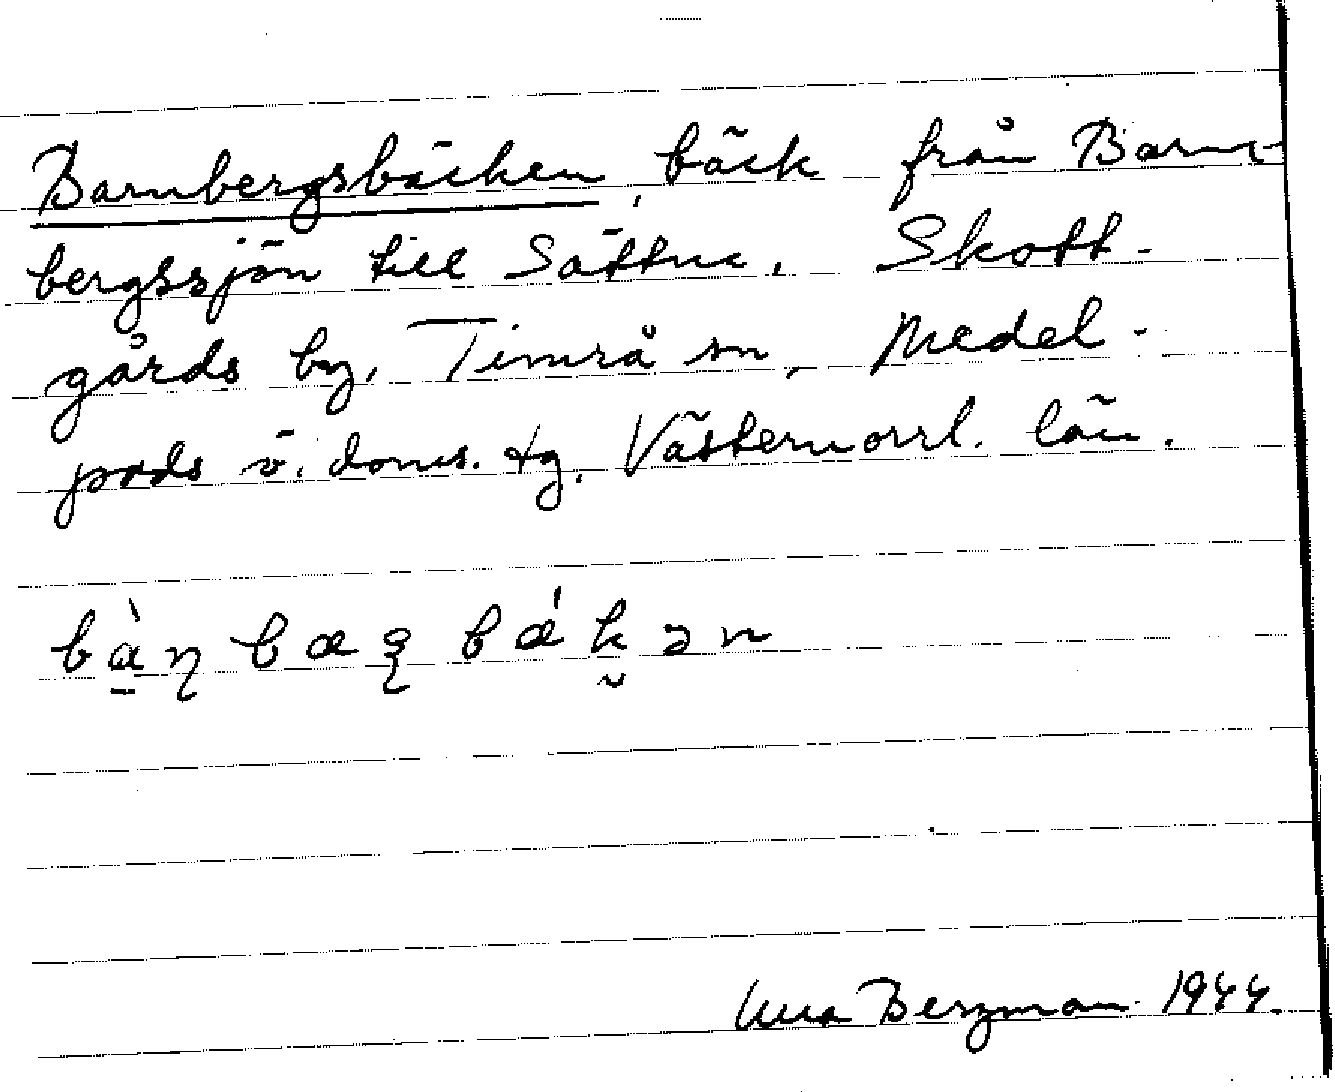 Barnbergsbäcken, bäck från Barn-
bergssjön till Sättna, Skott-
gårds by, Timrå sn, Medel-
pads ö. doms. tg. Västernorrl. län.
bànbæʂbǽkən
Bergman 1944.